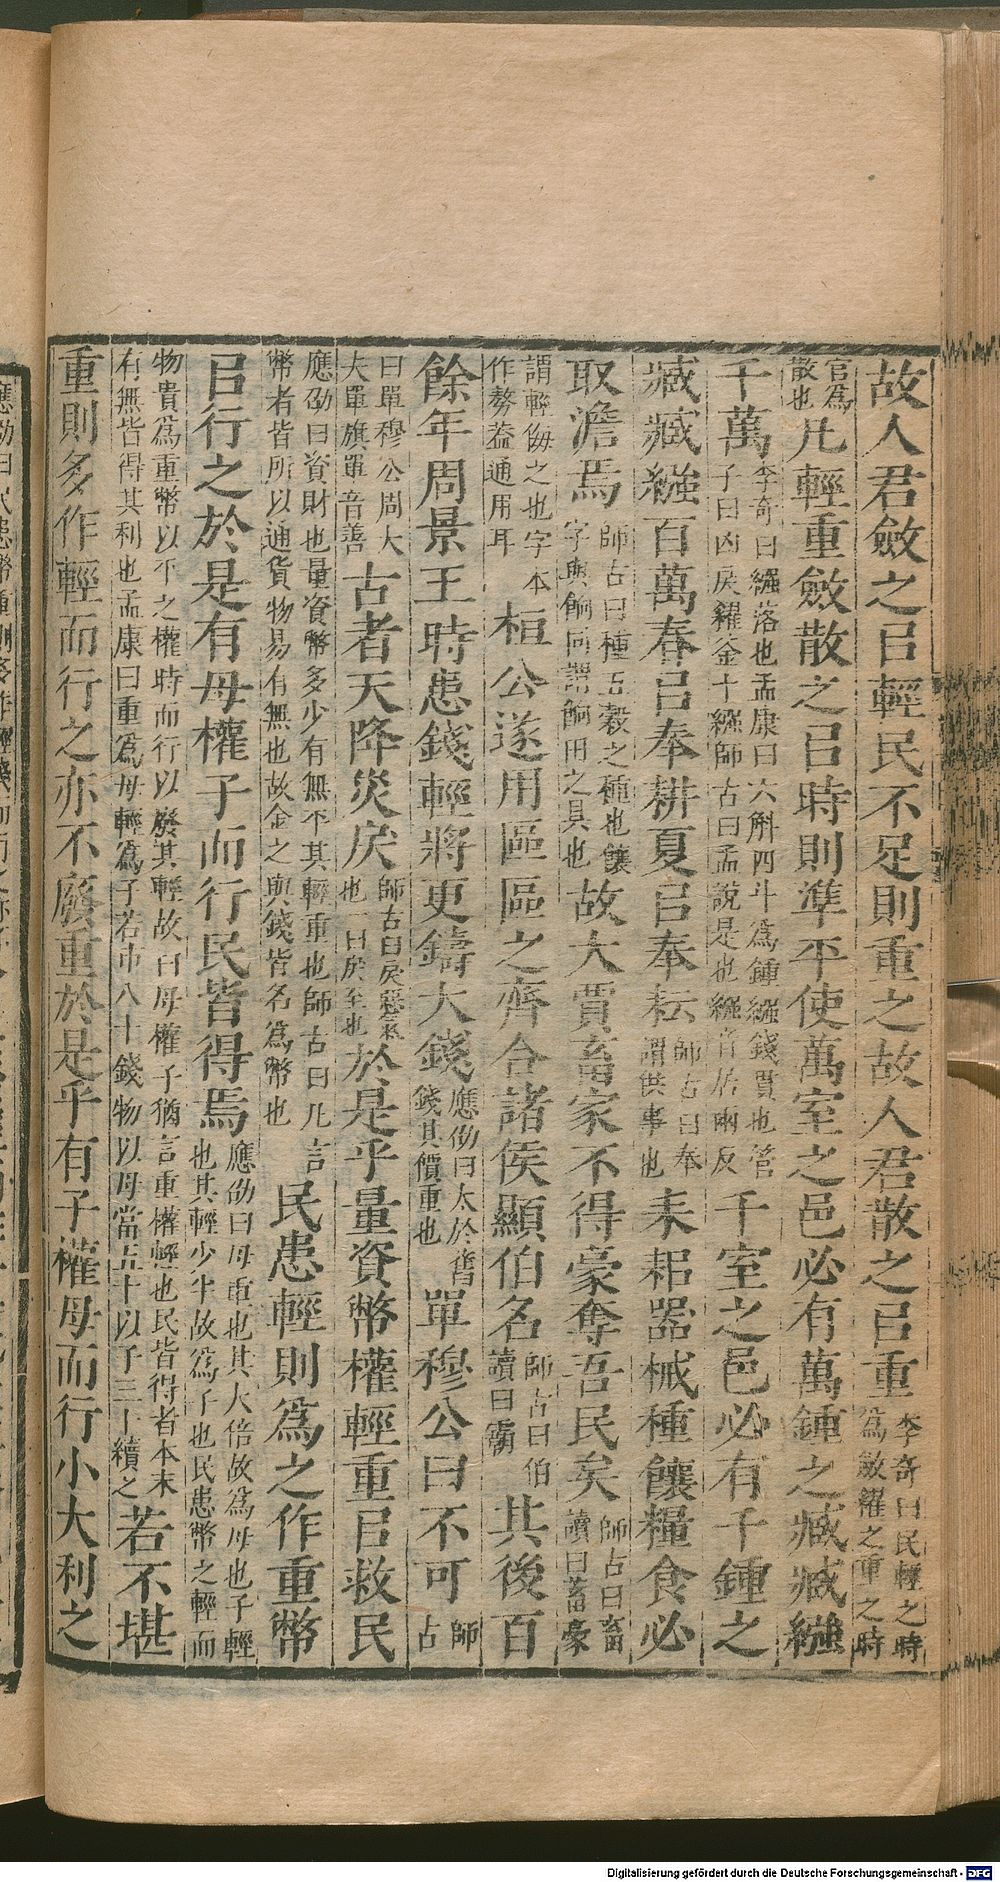 故人君斂之㠯輕民不足則重之故人君散之㠯重李奇曰民輕之時爲斂糴之重之時
官爲散也凡輕重斂散之㠯時則準平使萬室之邑必有萬鍾之臧臧繈
千萬李奇曰繈落也孟康曰六斛四斗爲鍾繈錢貫也管子曰凶歲糴釜十繈師古曰孟說是也繈音居兩反千室之邑必有千鍾之
臧臧繈百萬春㠯奉耕夏㠯奉耘師古曰奉謂供事也耒耜器械種饟糧食必
取澹焉師古曰種五穀之種也饟字與餉同謂餉田之具也故大賈畜家不得豪奪吾民矣師古曰畜讀曰蓄豪
謂輕侮之也字本作勢蓋通用耳桓公遂用區區之齊合諸侯顯伯名師古曰伯讀曰霸其後百
餘年周景王時患錢輕將更鑄大錢應劭曰大於舊錢其價重也單穆公曰不可師古
曰單穆公周大夫單旗單音善古者天降災戾師古曰戾惡氣也一曰戾至也於是乎量資幣權輕重㠯救民
應劭曰資財也量資幣多少有無平其輕重也師古曰凡言幣者皆所以通貨物易有無也故金之與錢皆名爲幣也民患輕則爲之作重幣
㠯行之於是有母權子而行民皆得焉應劭曰母重也其大倍故爲母也子輕也其輕少半故爲子也民患幣之輕而
物貴爲重幣以平之權時而行以廢其輕故曰母權子猶言重權輕也民皆得者本末有無皆得其利也孟康曰重爲母輕爲子若市八十錢物以母當五十以子三十續之若不堪
重則多作輕而行之亦不廢重於是乎有子權母而行小大利之
Digitalisierung gefördert durch die Deutsche Forschungsgemeinschaft - DFG